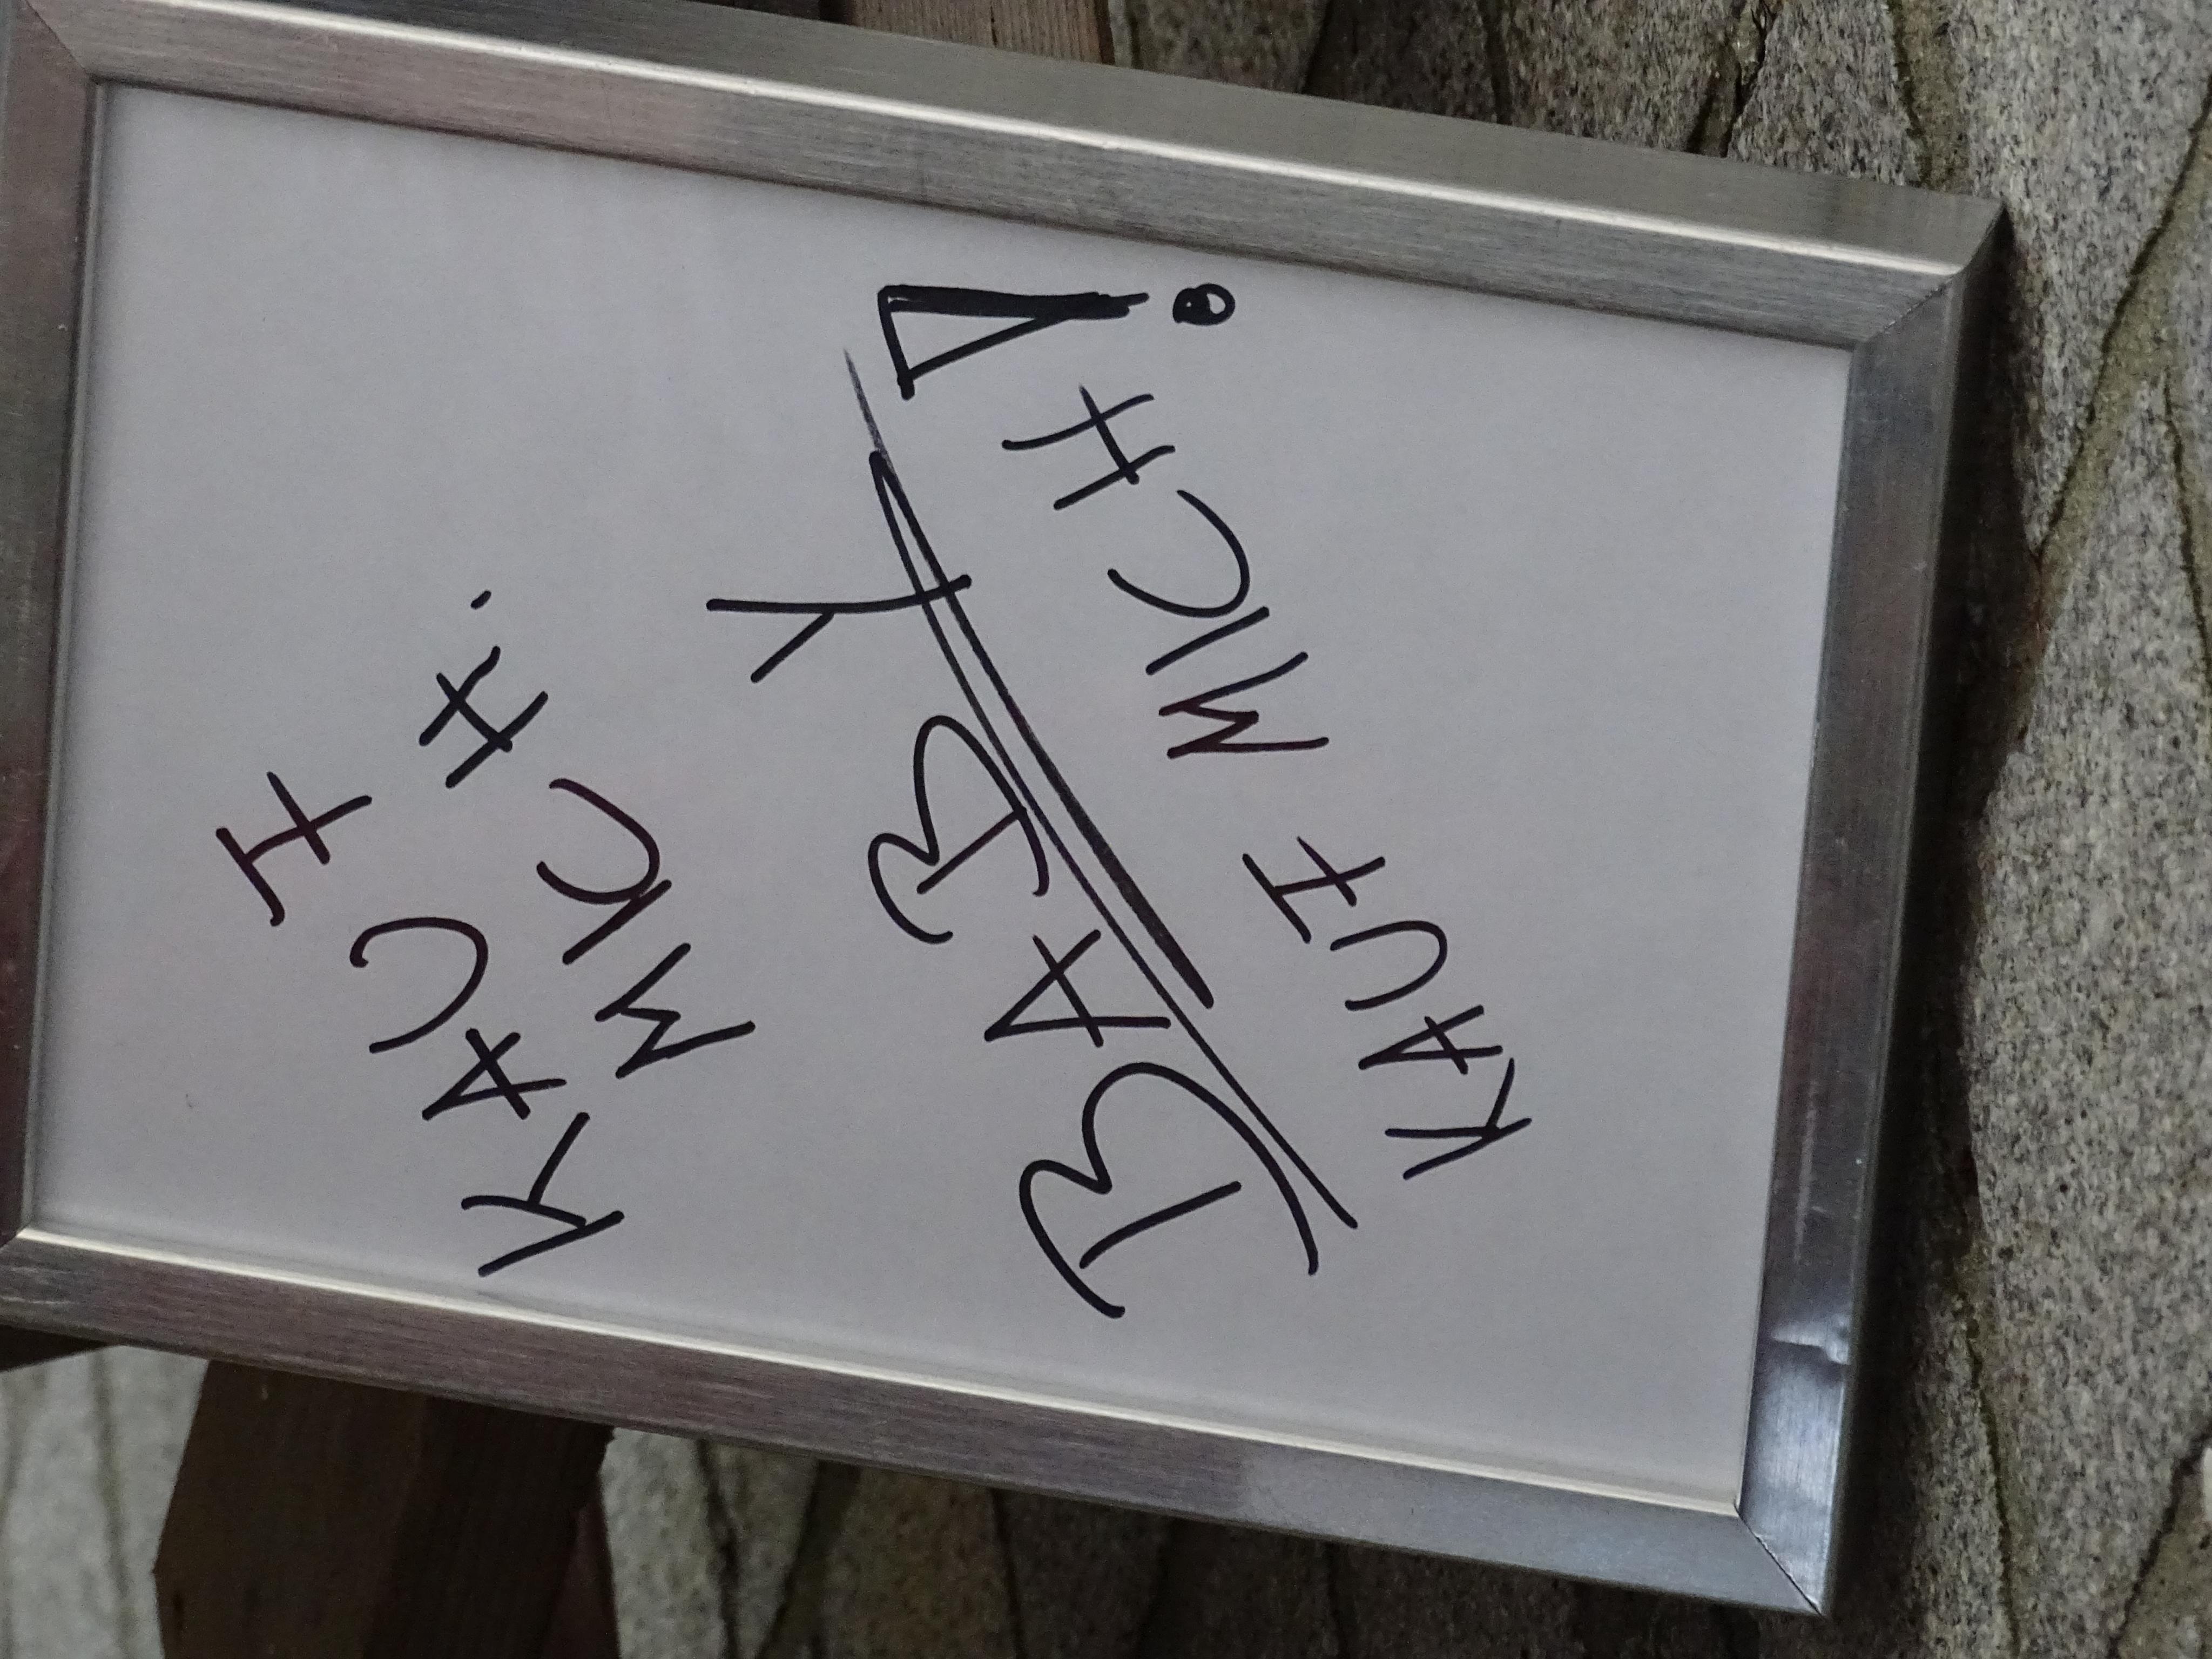 KAUF
MICH.
BABY
KAUF MICH!